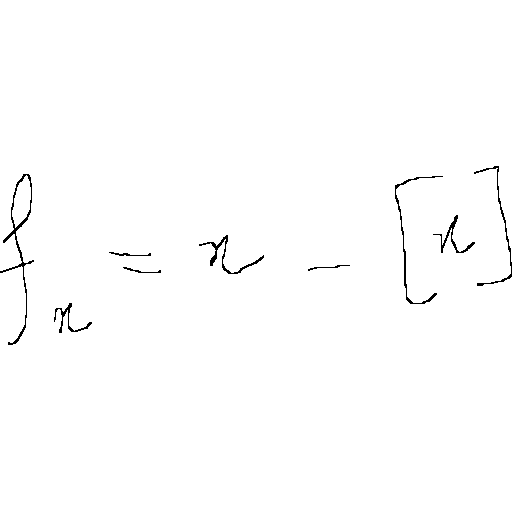 f_x = x - [x]